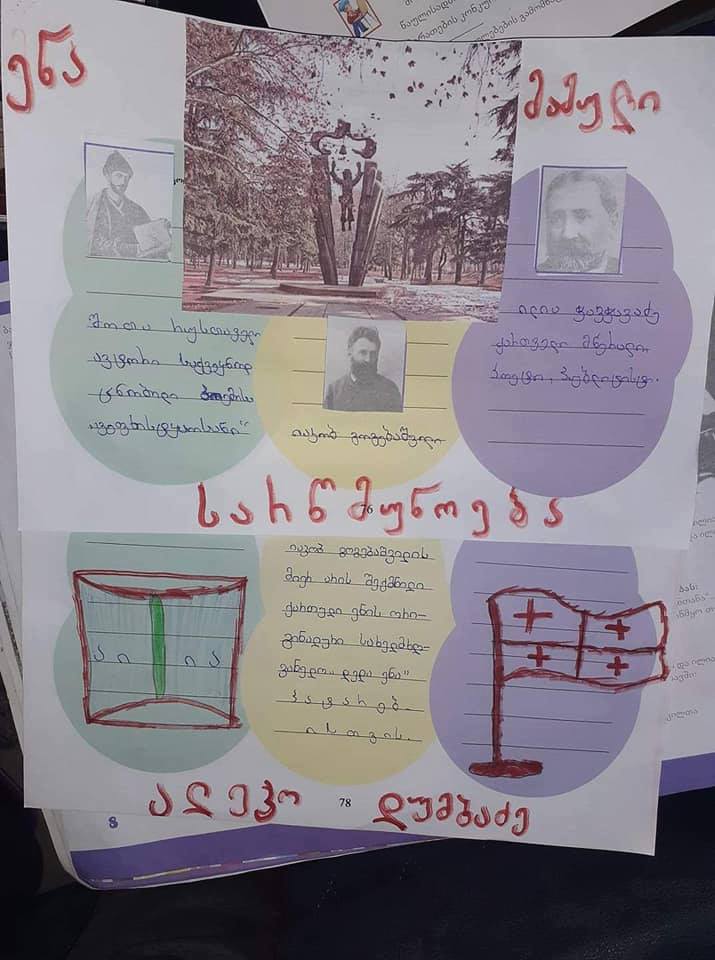 ენა
მამული
შოთა რუსთაველი
ავტორი საქვეყნოდ
ცნობილი პოემისა
„ვეფხისტყაოსანი“
იაკობ გოგებაშვილი
ილია ჭავჭავაძე
ქართველი მწერალი,
პოეტი, პუბლიცისტი.
სარწმუნოება
76
იაკობ გოგებაშვილის
მიერ არის შექმნილი
ქართული ენის ორი-
გინალური სახელმძღ-
ვანელო „დედა ენა“
პატარებ-
ისთვის.
აი ია
ალეკო დუმბაძე
78
8